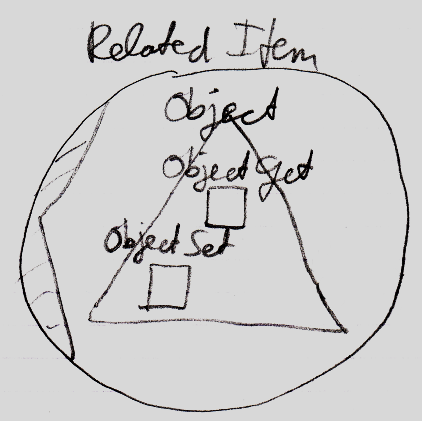 Related Item
Object
Object Get
Object Set